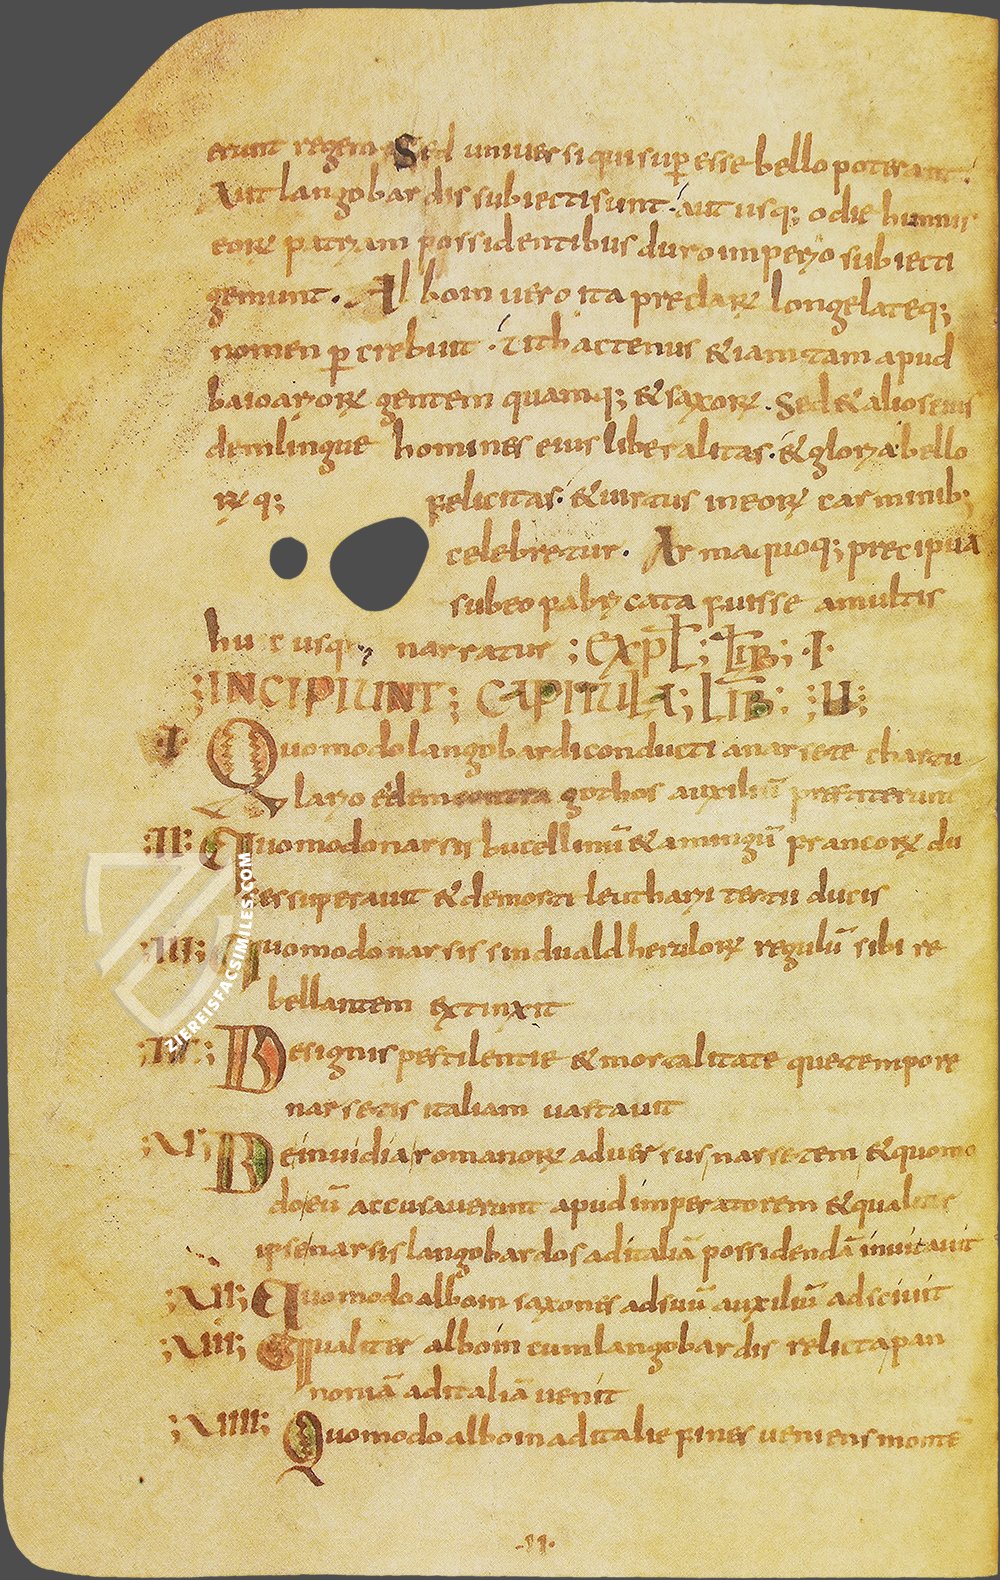 erunt regem Sed universi qui sup esse bello poterant.
Aut langobardis subiecti sunt. aut usq; odie hunnis
eorꝝ patryam possidentibus duro imperyo subiecti
gemunt. Alboin vero ita preclarꝝ longe lateq;
nomen ꝑcrebuit. Ut hactenus &iam tam apud
baioaryorꝝ gentem quamq; & saxorꝝ. Sed & alios eius
dem lingue homines eius liberalitas. & glorya bello
rꝝ q; felicitas. & uirtus in eorꝝ carminib;
celebretur. Arma quoq; precipua
sub eo fabrycata fuisse amultis
huc usq; narratur ; EXPL; LIB; ·I·
;INCIPIUNT; CAPITULA; LIB; ;II;
·I· Quomodo langobardi conducti anarsete chartu
laryo eidem contra gothos auxiliū prestiterunt
;II; Quomodo narsis bucellinū & amingū francorꝝ du
ces superauit & de morti leutharyi tertii ducis
;III; Quomodo narsis sinduald herulorꝝ regulū sibi re
bellantem extinxit
;IIII; De signis pestilentie & mortalitate que tempore
narsetis italiam uastauit
;V; De inuidia romanorꝝ aduersus narsetem & quomo
do eū accusauerunt apud imperatorem & qualiter
ipse narsis langobardos ad italiā possidendā inuitauit
;VII; Quomodo alboin saxones ad suū auxiliū adsciuit
;VIII; Qualiter alboin cum langobardis relicta pan
noniā ad italiā uenit
;VIIII; Quomodo alboin ad italie fines ueniens monte
·11·
ZIEREISFACSIMILES.COM